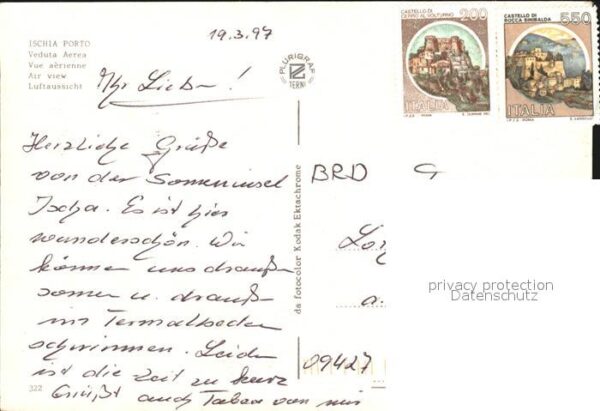 ISCHIA PORTO
Veduta Aerea
Vue aérienne
Air view
Luftaussicht
19.3.97
Ihr Lieben!
Herzliche Grüße
von der Sonneninsel
Ischa. Es ist hier
wunderschön. Wir
können uns draußen
sonnen u. draußen
im Termalbaden
schwimmen. Leider
ist die Zeit zu kurz
Grüßt auch von mir
322
PLURIGRAF
TERNI
da fotocolor Kodak Ektachrome
CASTELLO DI
CERRO AL VOLTURNO
200
ITALIA
I.P.Z.S. ROMA
CASTELLO DI
ROCCA SINIBALDA
550
ITALIA
I.P.Z.S. ROMA
BRD
a.
09427
privacy protection
Datenschutz